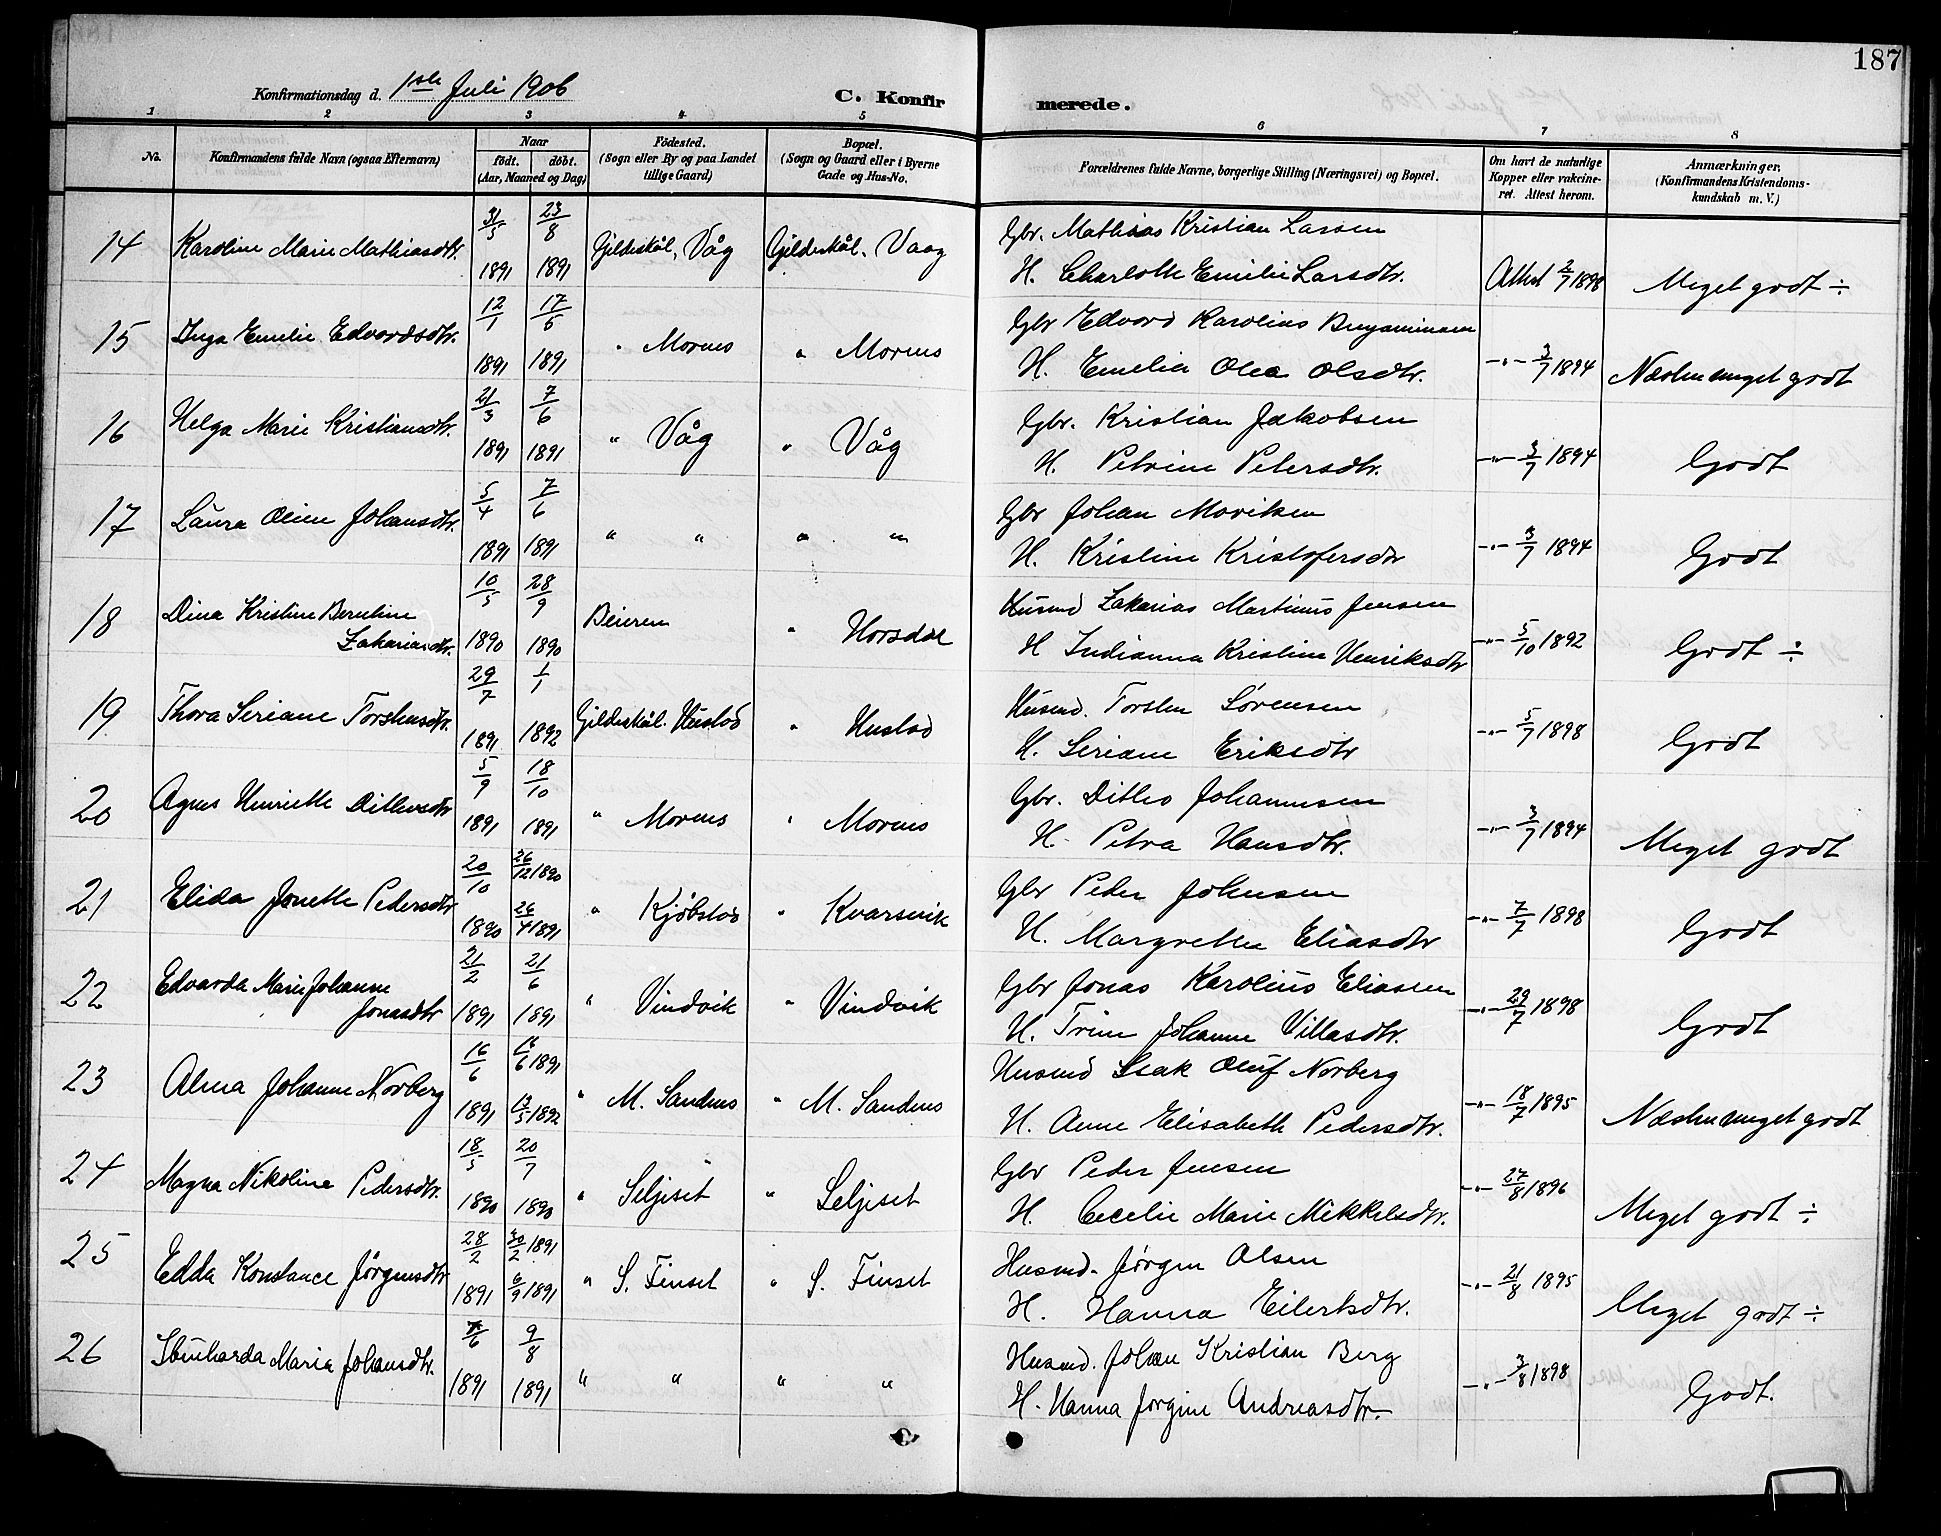 187
Konfirmationsdag d. 1ste Juli 1906
C. Konfir merede.
1 2 3 4 5 6 7 8
No. Konfirmandens fulde Navn (ogsaa Efternavn) Naar født. døbt. (Aar, Maaned og Dag) Fødested. (Sogn eller By og paa Landet tillige Gaard) Bopæl. (Sogn og Gaard eller i Byerne Gade og Hus-No. Forældrenes fulde Navne, borgerlige Stilling (Næringsvei) og Bopæl. Om havt de naturlige Kopper eller vakcineret. Attest herom. Anmærkninger, (Konfirmandens Kristendomskundskab m. V.)
14 Karoline Marie Mathiasdtr. 31/5 1891 23/8 1891 Gildeskål, Våg Gildeskål. Vaag Gbr. Mathias Kristian Larsen
H. Charlotte Emilie Larsdtr. Attest 2/7 1898 Meget godt ÷
15 Inga Emilie Edvardsdtr. 12/1 1891 17/6 1891 " Mornes " Mornes Gbr Edvard Karolius Benjaminsen
H. Emelie Olea Olsdtr. -"- 3/7 1894 Næsten meget godt
16 Helga Marie Kristiansdtr. 21/3 1891 7/6 1891 " Våg " Våg Gbr. Kristian Jakobsen
H. Petrine Petersdtr. -"- 3/7 1894 Godt
17 Laura Oline Johansdtr. 5/4 1891 7/6 1891 " " " " Gbr Johan Moriksen
H. Kristine Kristofersdtr -"- 3/7 1894 Godt
18 Dina Kristine Berntine
Zakariasdtr. 10/5 1890 28/9 1890 Beieren " Horsdal Husmd Zakarias Martinus Jensen
H Indianna Kristine Henriksdtr -"- 5/10 1892 Godt ÷
19. Thora Seriane Torstensdtr. 29/7 1891 1/1 1892 Gildeskål. Hustad " Hustad Husmd. Torsten Sørensen
H. Seriane Eriksdtr -"- 5/7 1898 Godt
20 Agnes Henriette Ditlevsdtr 5/9 1891 18/10 1891 " Mornes " Mornes Gbr. Ditlev Johannesen
H. Petra Hansdtr. -"- 3/7 1894 Meget godt
21 Elida Jonette Pedersdtr 20/10 1890 26/12 1890 26/4 1891 " Kjøbstad " Kvarsvik Gbr Peder Johnsen
H. Margrethe Eliasdtr -"- 7/7 1898 Godt
22 Edvarda Marie Johanne
Jonasdtr 21/2 1891 21/6 1891 " Vindvik " Vindvik Gbr Jonas Karolius Eliasen
H. Trine Johanne Villasdtr. -"- 29/7 1898 Godt
23 Alma Johanne Norberg 16/6 1891 /6 1891 13/5 1892 " M. Sandnes " M. Sandnes Husmd Isak Oluf Norberg
H. Anne Elisabeth Pedersdtr. -"- 18/7 1895 Næsten meget godt
24 Magna Nikoline Pedersdtr. 18/5 1890 20/7 1890 " Seljeset " Seljeset Gbr Peder Jensen
H. Cecelie Marie Mikkelsdtr. -"- 27/8 1896 Meget godt ÷
25 Edda Konstance Jørgensdtr 28/2 1891 30/2 1891 6/9 1891 " S. Finset " S. Finset Husmd. Jørgen Olsen
H. Hanna Eilertsdtr. -"- 21/8 1895 Meget godt ÷
26 Maria Johansdtr. /6 1891 9/8 1891 " " " " Husmd. Johan Kristian Berg
H. Hanna Jørgine Andreasdtr. -"- 3/8 1898 Godt.